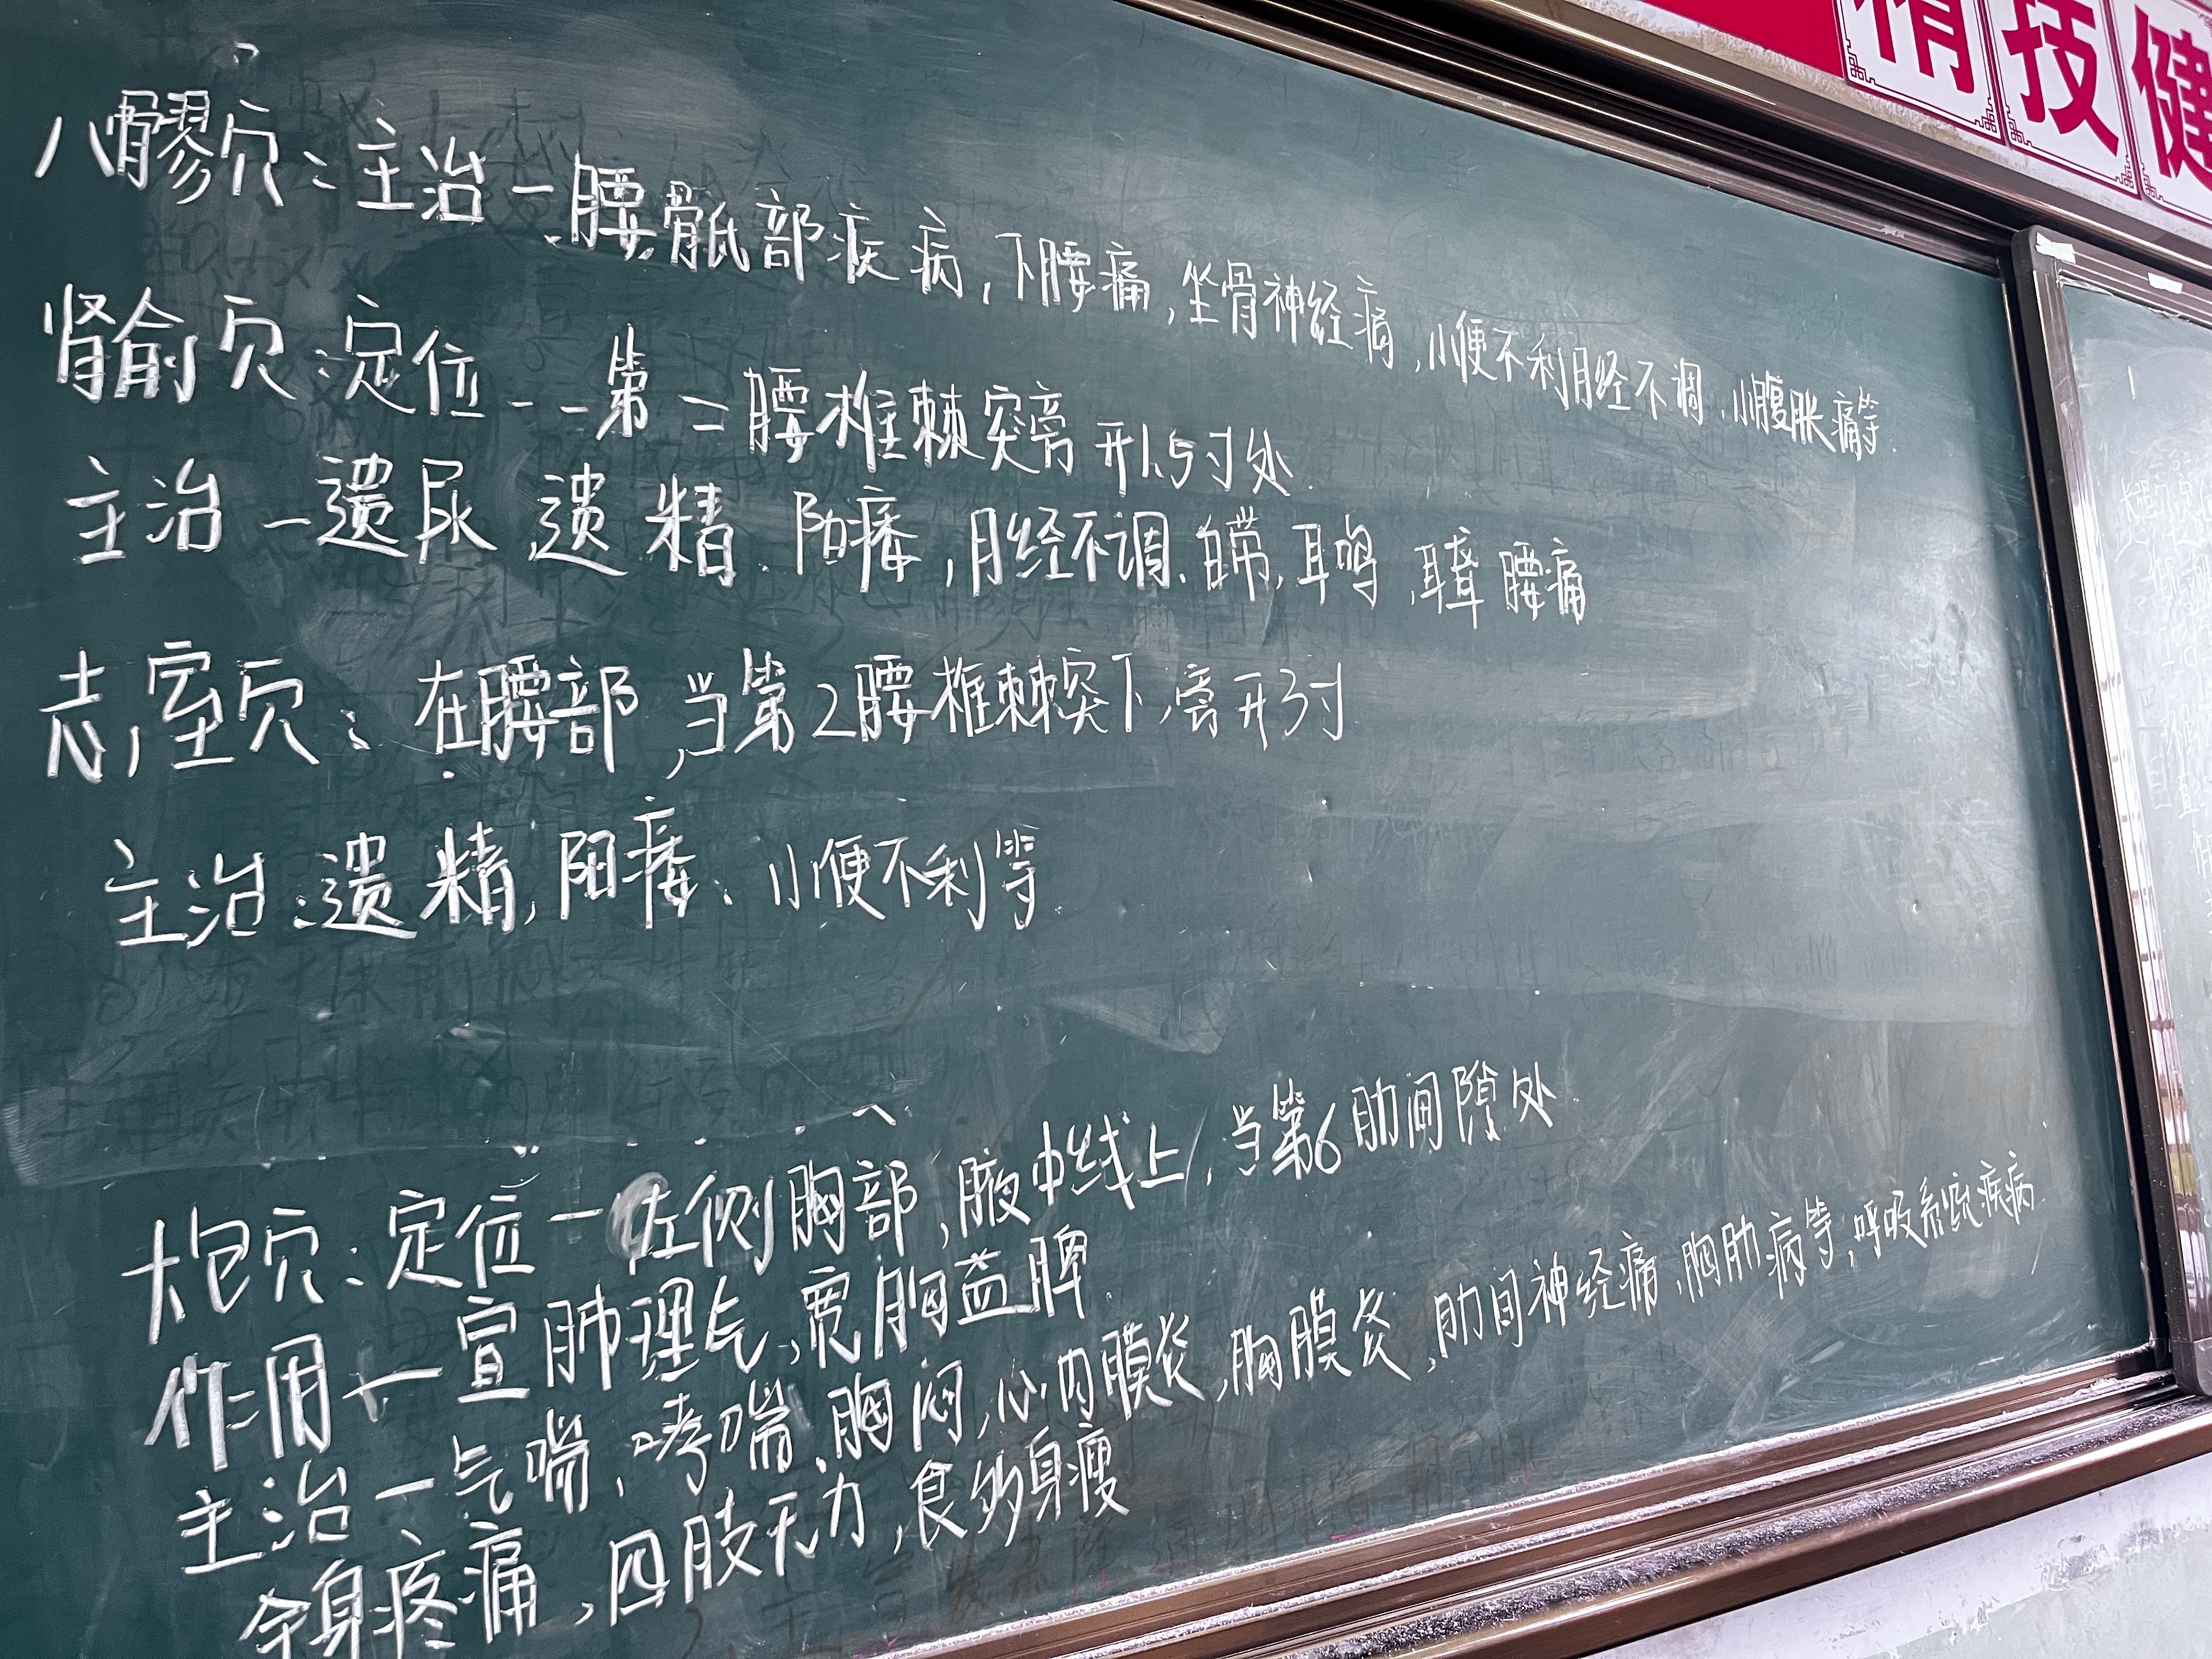 精技健
八髎穴:主治—腰骶部疾病,下腰痛,坐骨神经痛,小便不利月经不调、小腹胀痛等.
肾俞穴:定位--第二腰椎棘突旁开1.5寸处.
主治—遗尿 遗精、阳痿,月经不调、白带,耳鸣,耳聋 腰痛
志室穴:在腰部,当第2腰椎棘突下,旁开3寸
主治:遗精,阳痿、小便不利等.
大包穴:定位—左侧胸部,腋中线上,当第6肋间隙处
作用—宣肺理气,宽胸益脾
主治—气喘,哮喘、胸闷,心内膜炎,胸膜炎,肋间神经痛,胸肋病等,呼吸系统疾病.
全身疼痛,四肢无力,食多身瘦